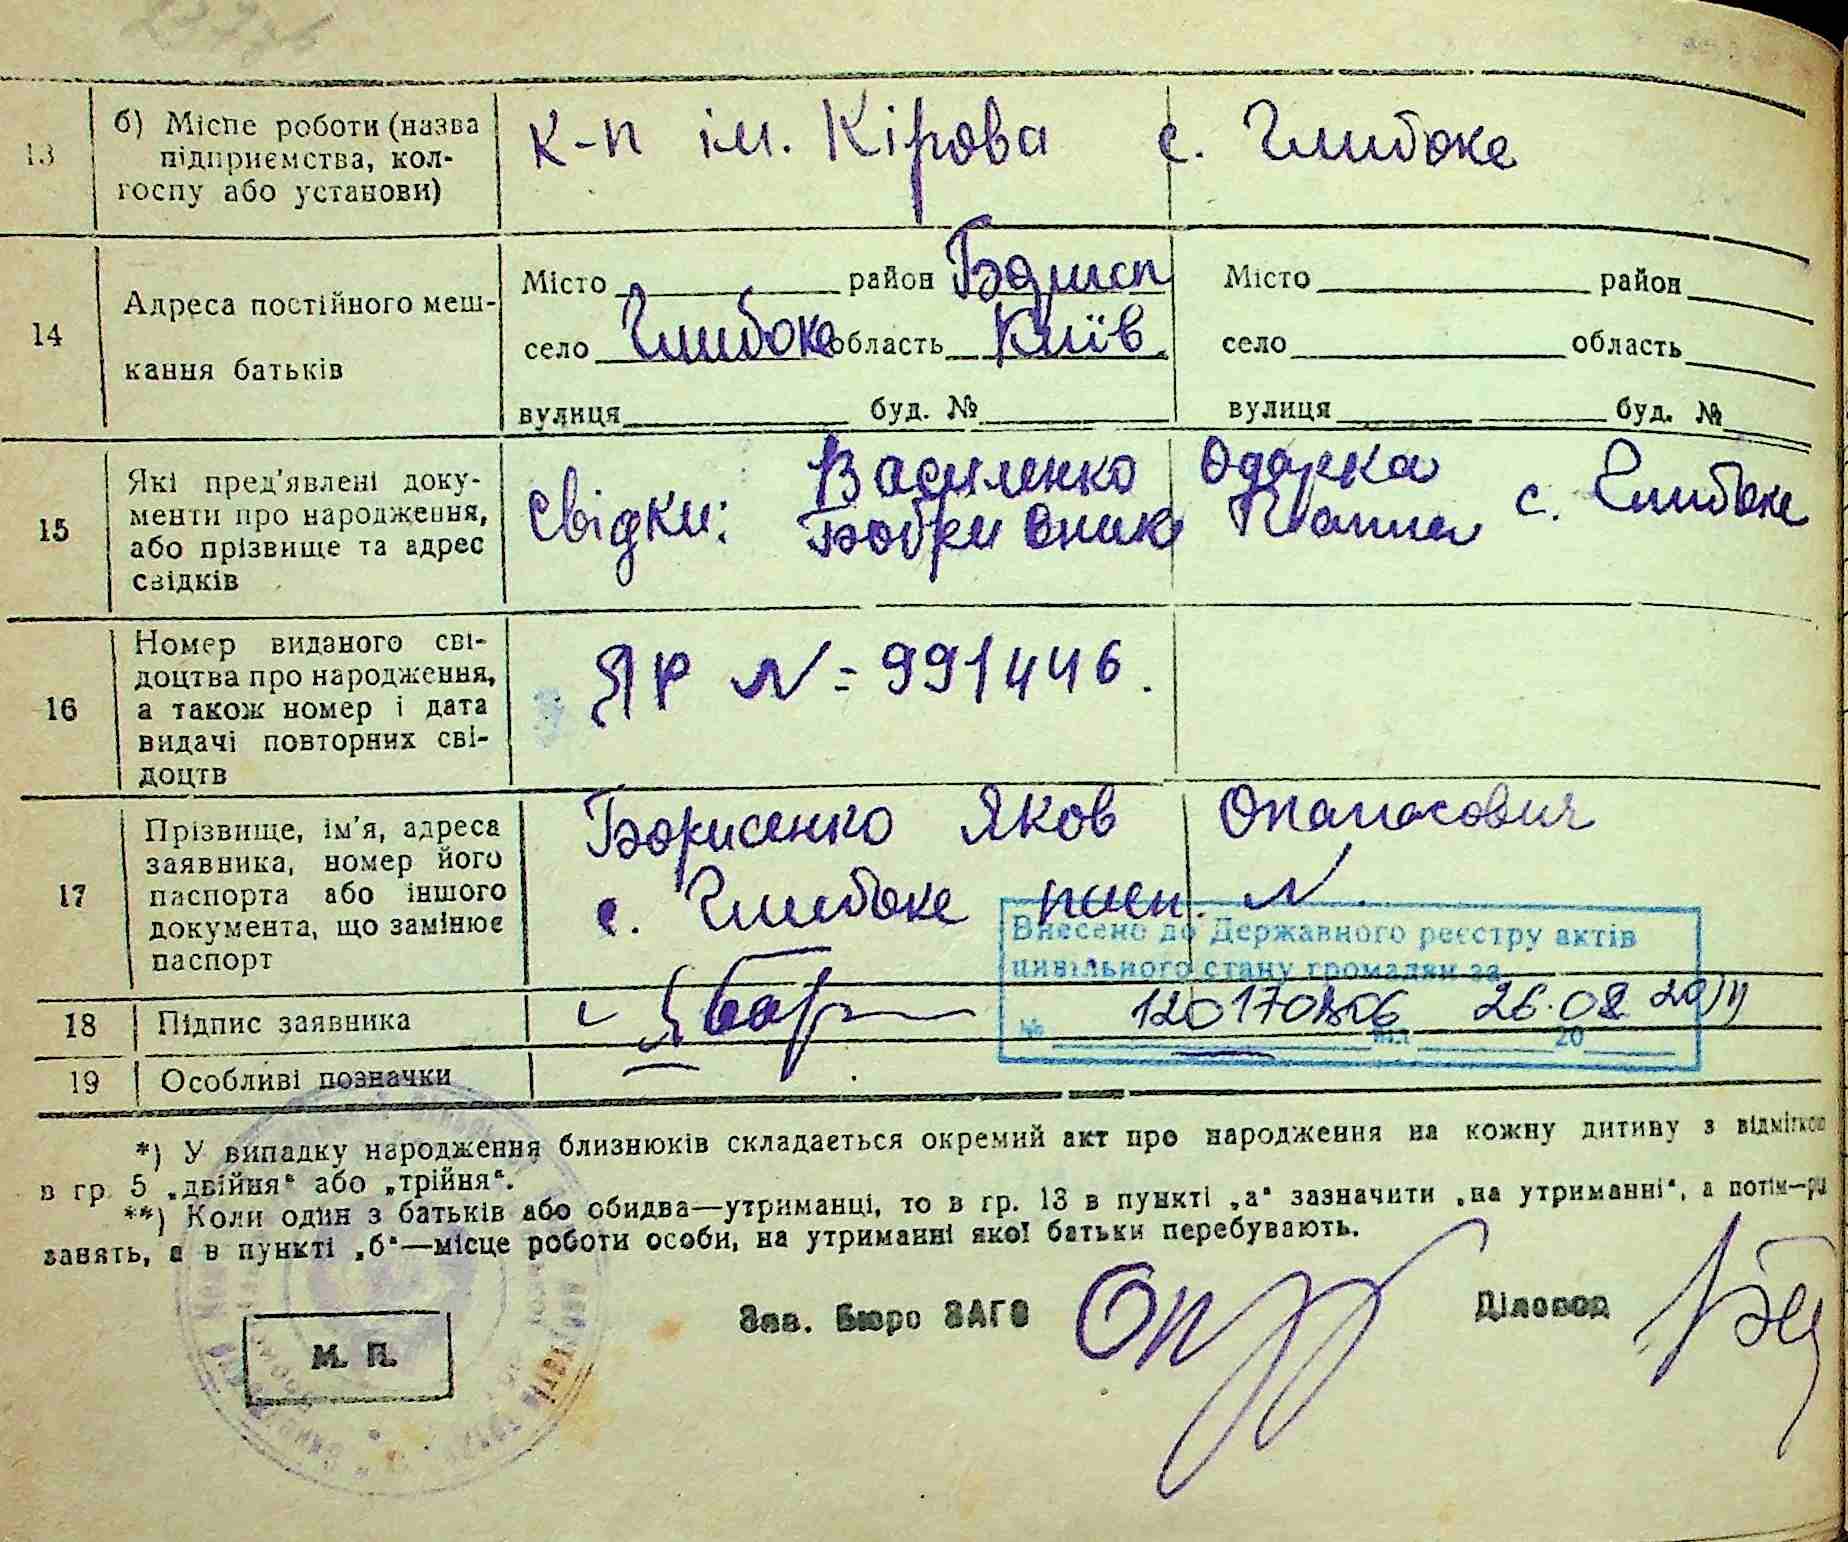 13
б) Місце роботи (назва
підприємства, кол-
госпу або установи)
К-п ім. Кірова с. Глибоке
14
Адреса постійного меш-
кання батьків
Місто район Борисп
село Глибоке область Київ.
вулиця буд. №
Місто район
село область
вулиця буд. №
15
Які пред'явлені доку-
менти про народження,
або прізвище та адрес
свідків
Свідки: Василенко Одарка
Бобри с. Глибоке
16
Номер виданого сві-
доцтва про народження,
а також номер і дата
видачі повторних сві-
доцтв
ЯР N = 991446.
17
Прізвище, ім'я, адреса
заявника, номер його
паспорта або іншого
документа, що замінює
паспорт
Борисенко Яков Опанасович
с. Глибоке пасп. N
Внесено до Державного реєстру актів
цивільного стану громадян за
№ 26.02 2014
20
18
Підпис заявника
19
Особливі позначки
*) У випадку народження близнюків складається окремий акт про народження на кожну дитину з відміткою
в гр. 5 „двійня“ або „трійня“.
**) Коли один з батьків або обидва—утриманці, то в гр. 13 в пункті „а“ зазначити „на утриманні“, а потім—рід
занять, а в пункті „б“—місце роботи особи, на утриманні якої батьки перебувають.
Зав. Бюро ЗАГС
Діловод
М. П.